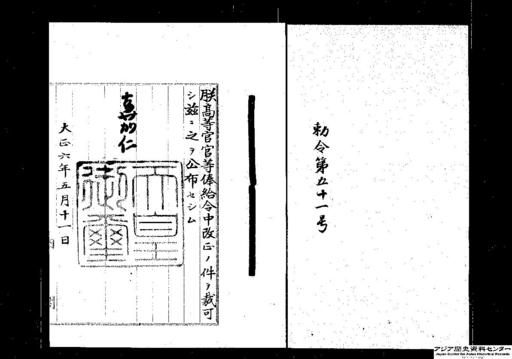 勅令第五十一号
朕高等官官等俸給令中改正ノ件ヲ裁可
シ茲ニ之ヲ公布セシム
嘉仁
天皇御璽
大正六年五月十一日
内閣
アジア歴史資料センター
Japan Center for Asian Historical Records